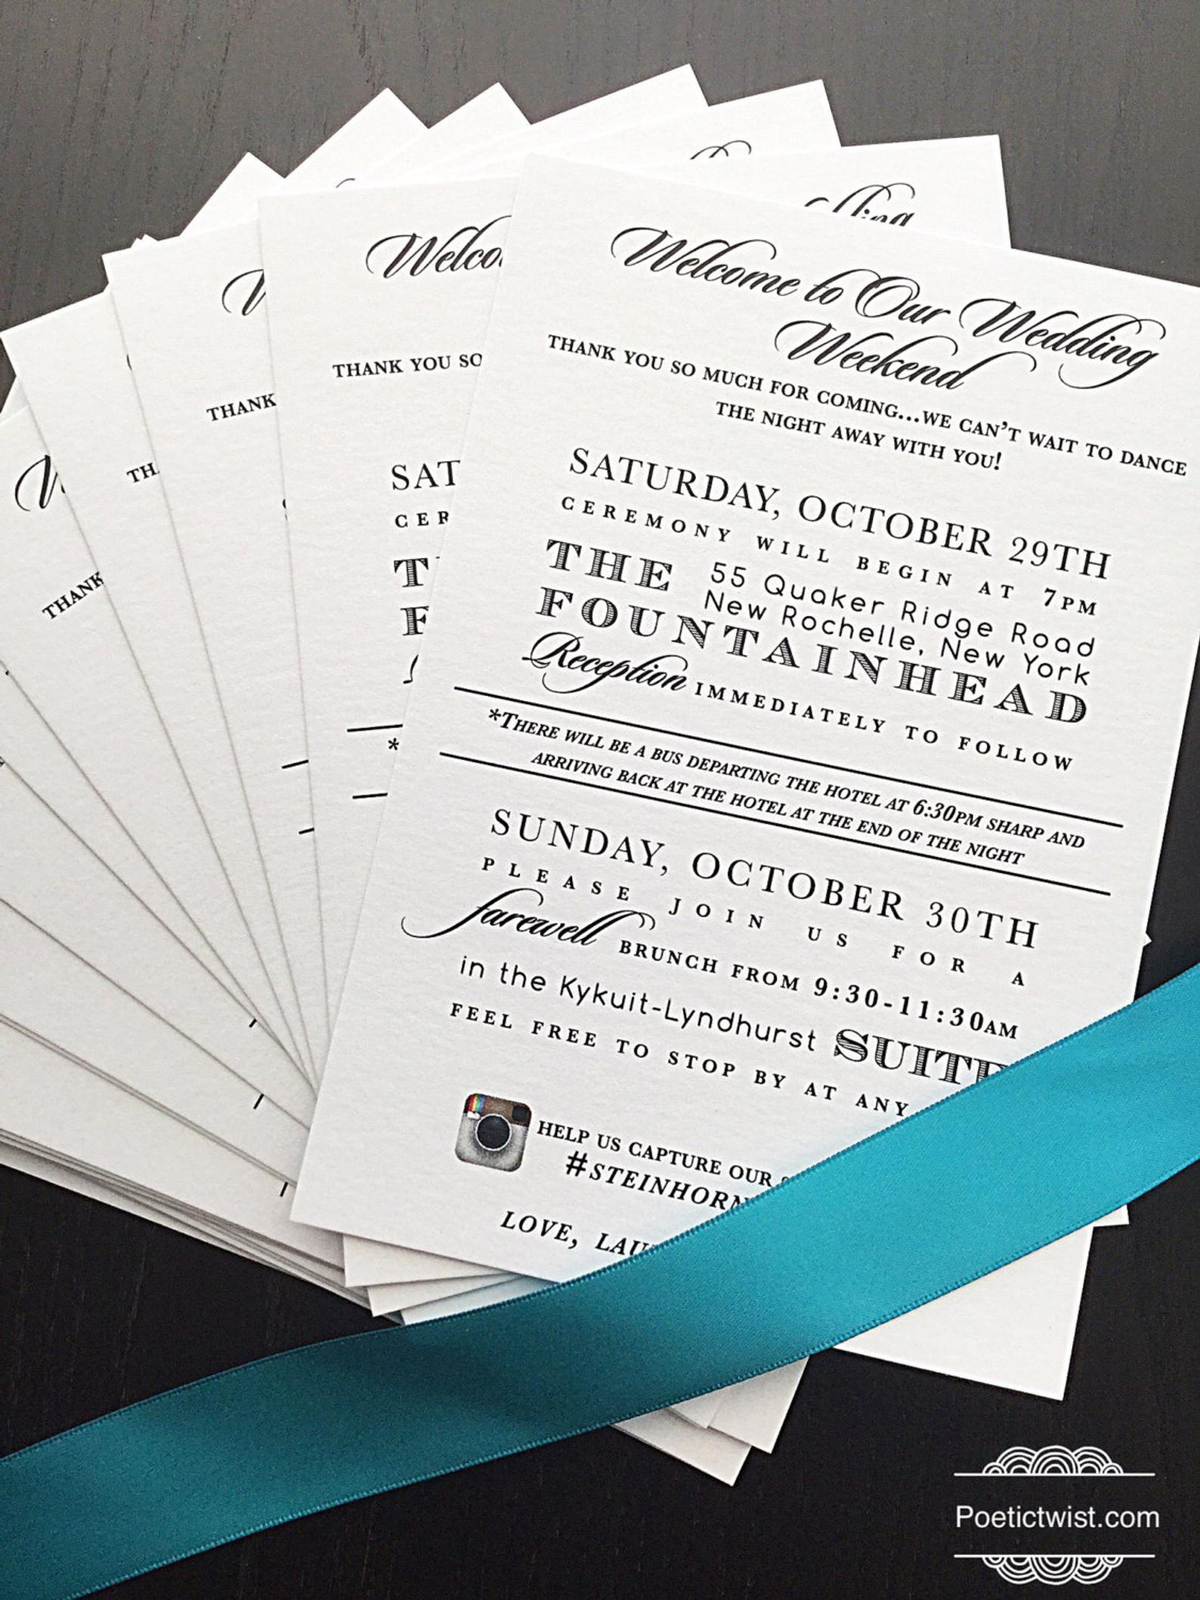 Welcome to Our Wedding
Weekend
THANK YOU SO MUCH FOR COMING...WE CAN'T WAIT TO DANCE
THE NIGHT AWAY WITH YOU!
SATURDAY, OCTOBER 29TH
CEREMONY WILL BEGIN AT 7PM
THE 55 Quaker Ridge Road
New Rochelle, New York
FOUNTAINHEAD
Reception IMMEDIATELY TO FOLLOW
*THERE WILL BE A BUS DEPARTING THE HOTEL AT 6:30PM SHARP AND
ARRIVING BACK AT THE HOTEL AT THE END OF THE NIGHT
SUNDAY, OCTOBER 30TH
PLEASE JOIN US FOR A
farewell BRUNCH FROM 9:30-11:30AM
in the Kykuit-Lyndhurst SUITE
FEEL FREE TO STOP BY AT ANY
HELP US CAPTURE OUR
#STEINHORN
LOVE, LAU
Welco
THANK YOU SO
SAT
CER
T
F
*
THANK
TH
THANK
Poetictwist.com